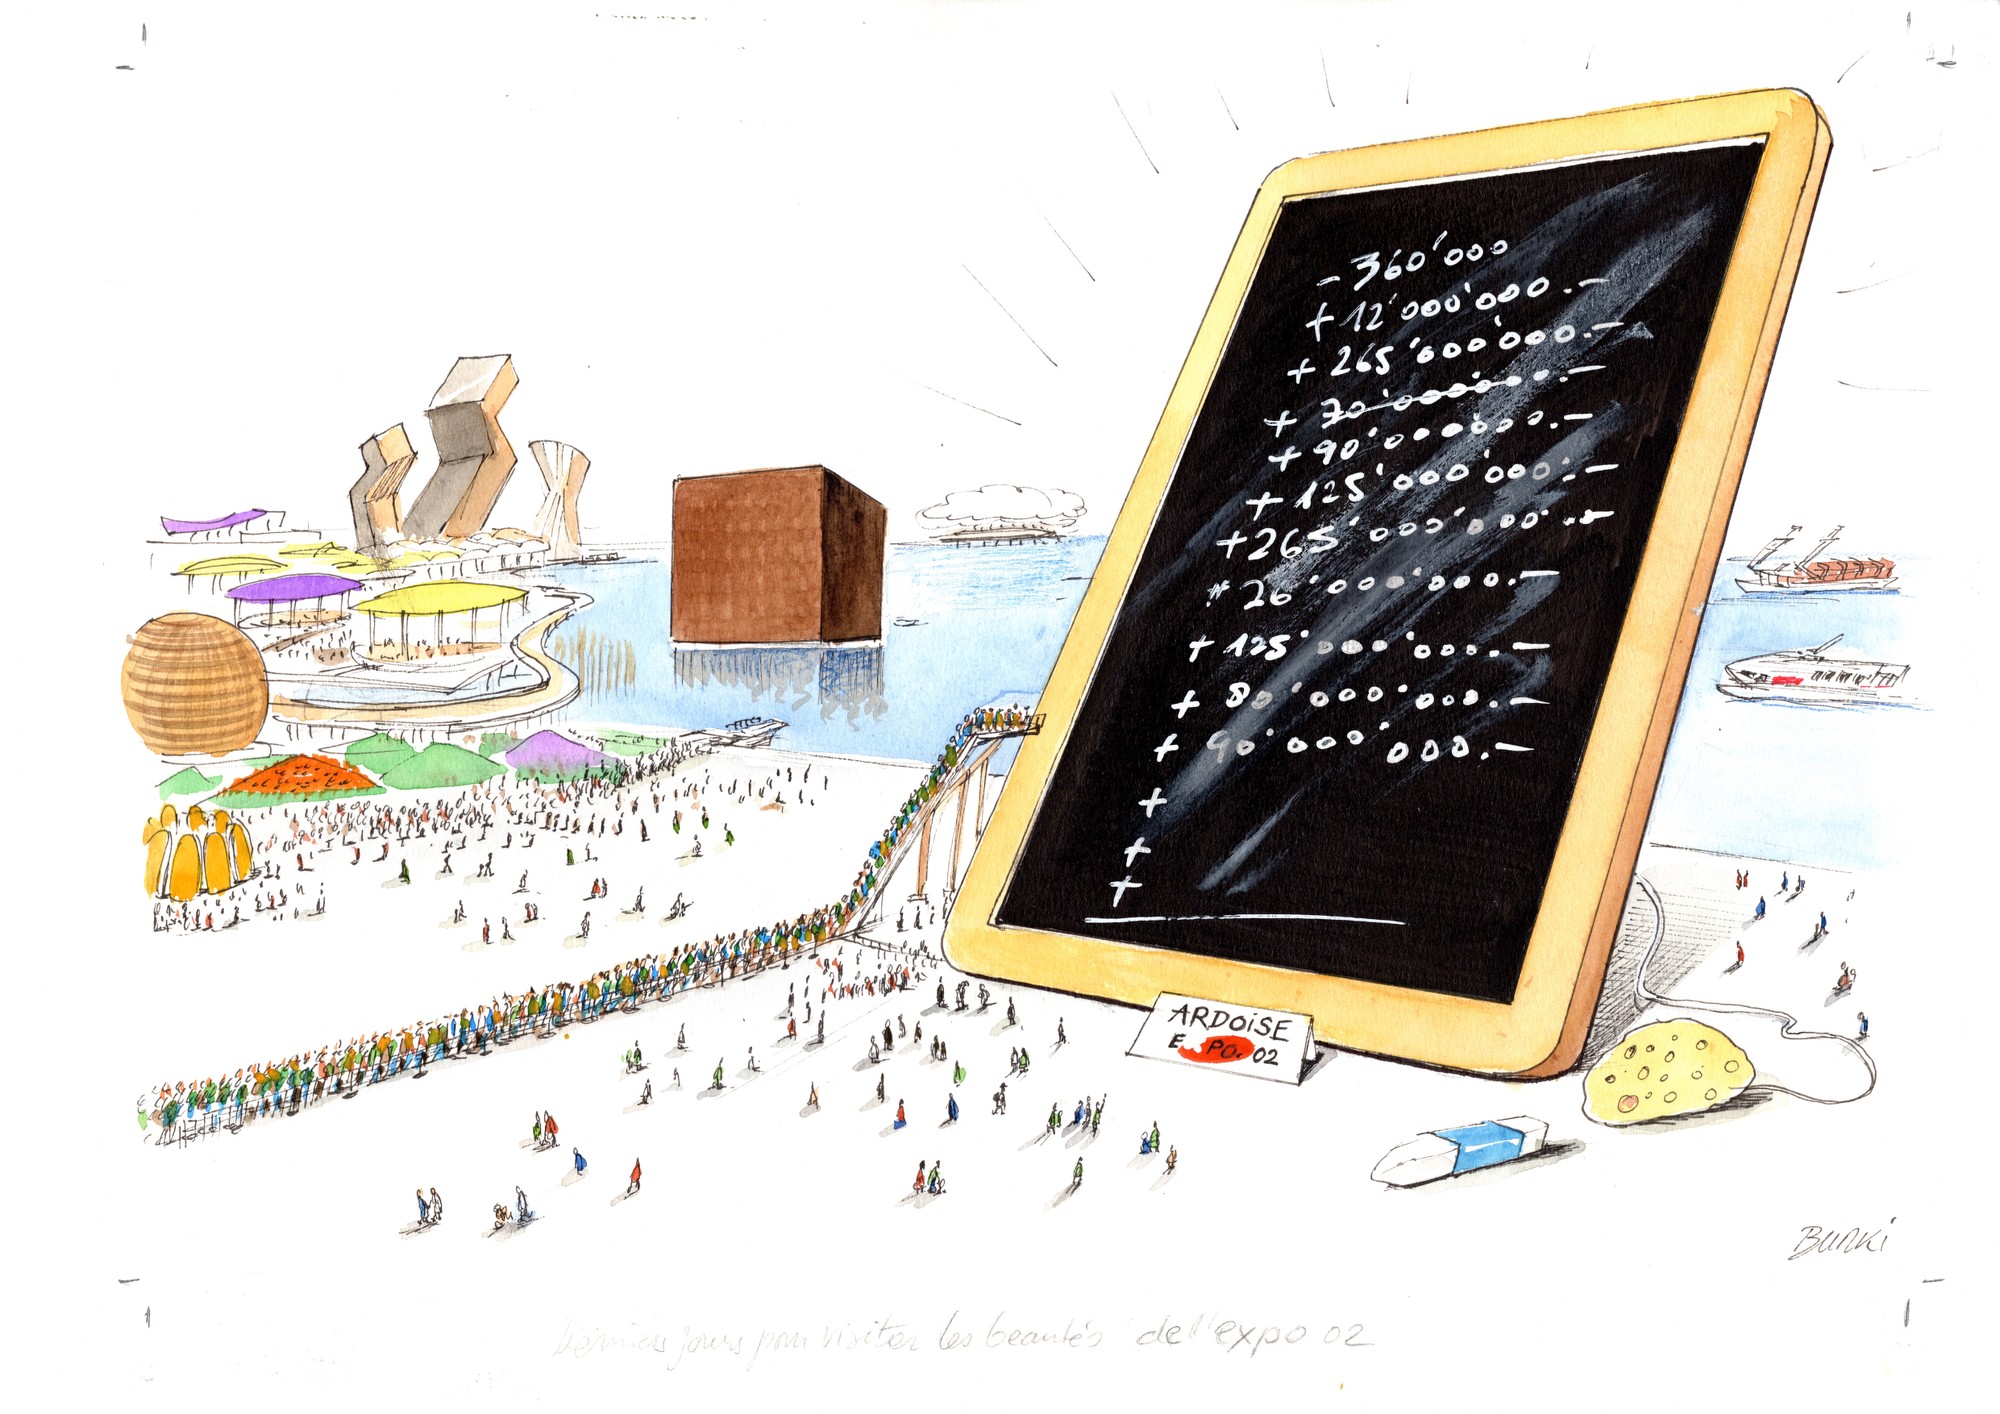 - 360'000
+ 12'000'000.-
+ 265'000'000.-
+ 70'000'000.-
+ 90'000'000.-
+ 125'000'000.-
+ 265'000'000.-
26'000'000.-
+ 125'000'000.-
+ 80'000'000.-
+ 90'000'000.-
+
+
+
ARDOISE
EXPO.02
BURKI
Derniers jours pour visiter les beautés de l'expo 02